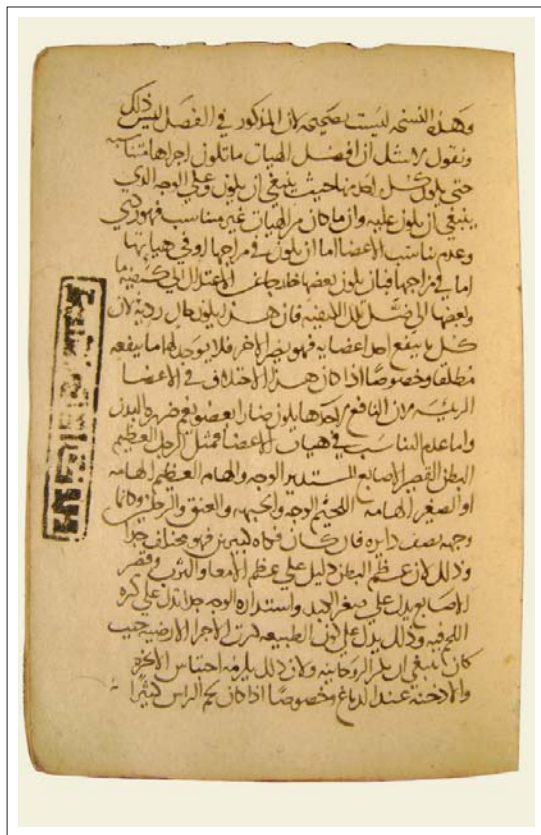 وهذه النسخه ليست بصحيحه لان المذكور في الفصل ليس ذلك
ونقول لاشك ان افضل الهيات ما تكون اجزاها متناسبه
حتى يكون كل احد منها حيث ينبغي ان يكون وعلي الوجه الذي
ينبغي ان يكون عليه وان ما كان من الهيات غير مناسب فهو ردي
وعدم تناسب الاعضا اما ان يكون في مزاجها او في هياتها
اما في مزاجها فبان يكون بعضها خارجا عن الاعتدال الي كيفيه ما
وبعضها الي ضد تلك الكيفيه فان هذا يكون حال رديه لان
كل ما ينفع احد اعضايه فهو يضر الاخر فلا يوجد لها ما ينفعه
مطلقا وخصوصًا اذا كان هذا الاختلاف في الاعضا
الرئيسه لان النافع لاحدها يكون ضارا لعضو يعم ضرره البدن
واما عدم التناسب في هيات الاعضا فمثل الرجل العظيم
البطن القصير الاصابع المستدير الوجه والهامه العظيم الهامه
او الصغير الهامه اللحيم الوجه والجبهه والعنق والرجلين وكانما
وجهه نصف دايره فان كان فكاه كبيرين فهو مختلف جدا
وذلك لان عظم البطن دليل علي عظم الامعا والثرب وقصر
الاصابع يدل علي صغر الكبد واستداره الوجه جدا تدل علي كثره
اللحم فيه وذلك يدل علي ان الطبيعه كثرت الاجزا الارضيه حيث
كان ينبغي ان تكثر الروحانيه ولان ذلك يلزمه احتباس الابخره
والادخنه عند الدماغ وخصوصًا اذا كان لحم الراس كثيرًا